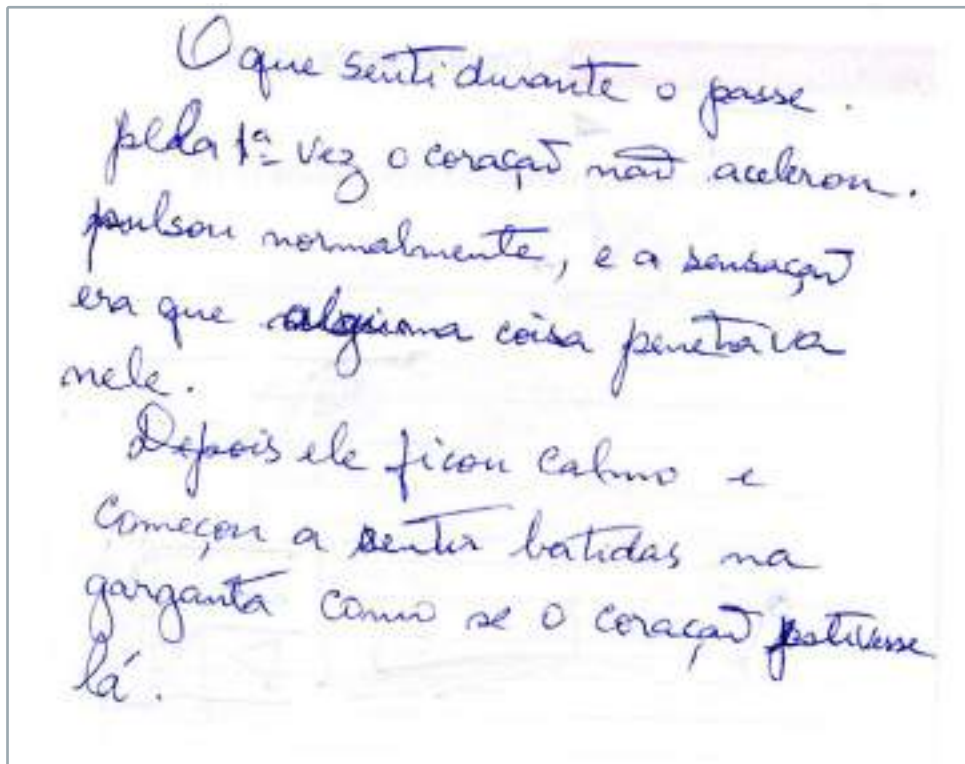 O que senti durante o passe.
pela 1ª vez o coração não acelerou.
pulsou normalmente, e a sensação
era que alguma coisa penetrava
nele.
Depois ele ficou calmo e
começou a sentir batidas na
garganta como se o coração estivesse
lá.